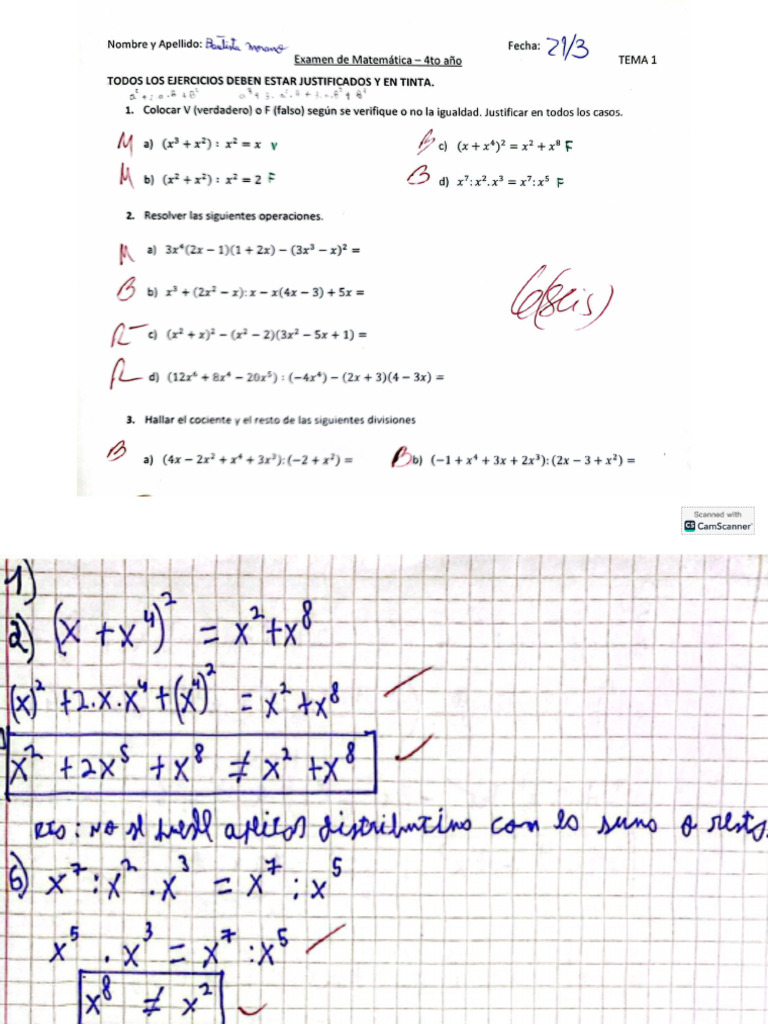 Nombre y Apellido: Bautista Moreno Fecha: 21/3
Examen de Matemática – 4to año TEMA 1
TODOS LOS EJERCICIOS DEBEN ESTAR JUSTIFICADOS Y EN TINTA.
1. Colocar V (verdadero) o F (falso) según se verifique o no la igualdad. Justificar en todos los casos.
M a) (x³ + x²) : x² = x V B c) (x + x⁴)² = x² + x⁸ F
M b) (x² + x²) : x² = 2 F B d) x⁷: x². x³ = x⁷: x⁵ F
2. Resolver las siguientes operaciones.
M a) 3x⁴(2x − 1)(1 + 2x) − (3x³ − x)² =
B b) x³ + (2x² − x): x − x(4x − 3) + 5x =
R− c) (x² + x)² − (x² − 2)(3x² − 5x + 1) =
6(seis)
R d) (12x⁶ + 8x⁴ − 20x⁵) : (−4x⁴) − (2x + 3)(4 − 3x) =
3. Hallar el cociente y el resto de las siguientes divisiones
B a) (4x − 2x² + x⁴ + 3x³): (−2 + x²) = B b) (−1 + x⁴ + 3x + 2x³): (2x − 3 + x²) =
Scanned with
CS CamScanner
1)
2) (x + x⁴)² = x² + x⁸
(x)² + 2.x.x⁴ + (x⁴)² = x² + x⁸
x² + 2x⁵ + x⁸ ≠ x² + x⁸
RTO: NO se puede aplicar distributiva con la suma o resta.
6) x⁷ : x² . x³ = x⁷ : x⁵
x⁵ . x³ = x⁷ : x⁵
x⁸ ≠ x²